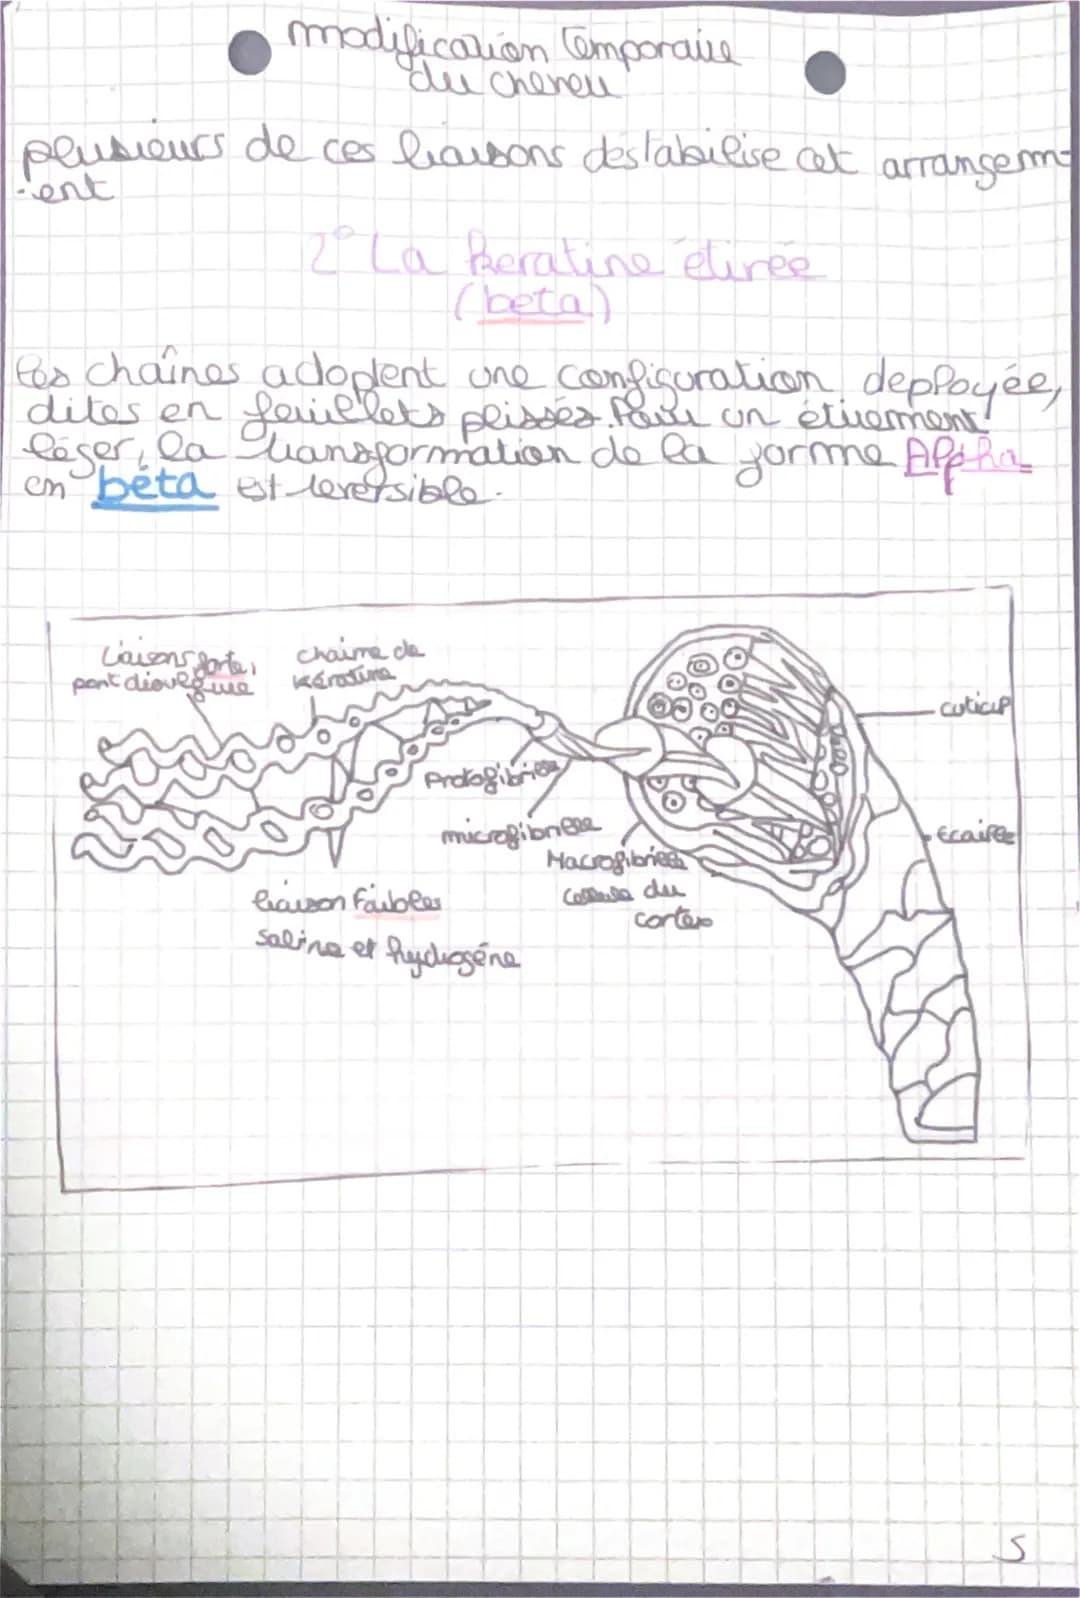 modification temporaire
du cheveu
plusieurs de ces liaisons destabilise cet arrangem-
-ent
2° La keratine étirée
(beta)
Les chaînes adoptent une configuration deployée,
dites en feuillets plissés. Pour un étirement
léger, la transformation de la forme Alpha
en béta est reversible.
Liaisons forte,
pont
chaine de
kératine
cuticul
Protofibrille
microfibrille
Ecaille
Macrofibrille
du
cortex
liaison faibles
saline et hydrogéne
5